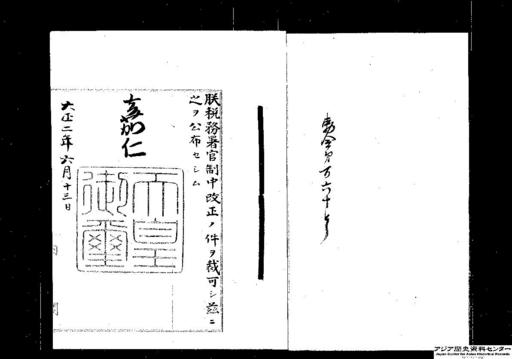 勅令第百六十号
朕税務署官制中改正ノ件ヲ裁可シ茲ニ
之ヲ公布セシム
嘉仁
天皇
御璽
大正二年六月十三日
内閣
アジア歴史資料センター
Japan Center for Asian Historical Records